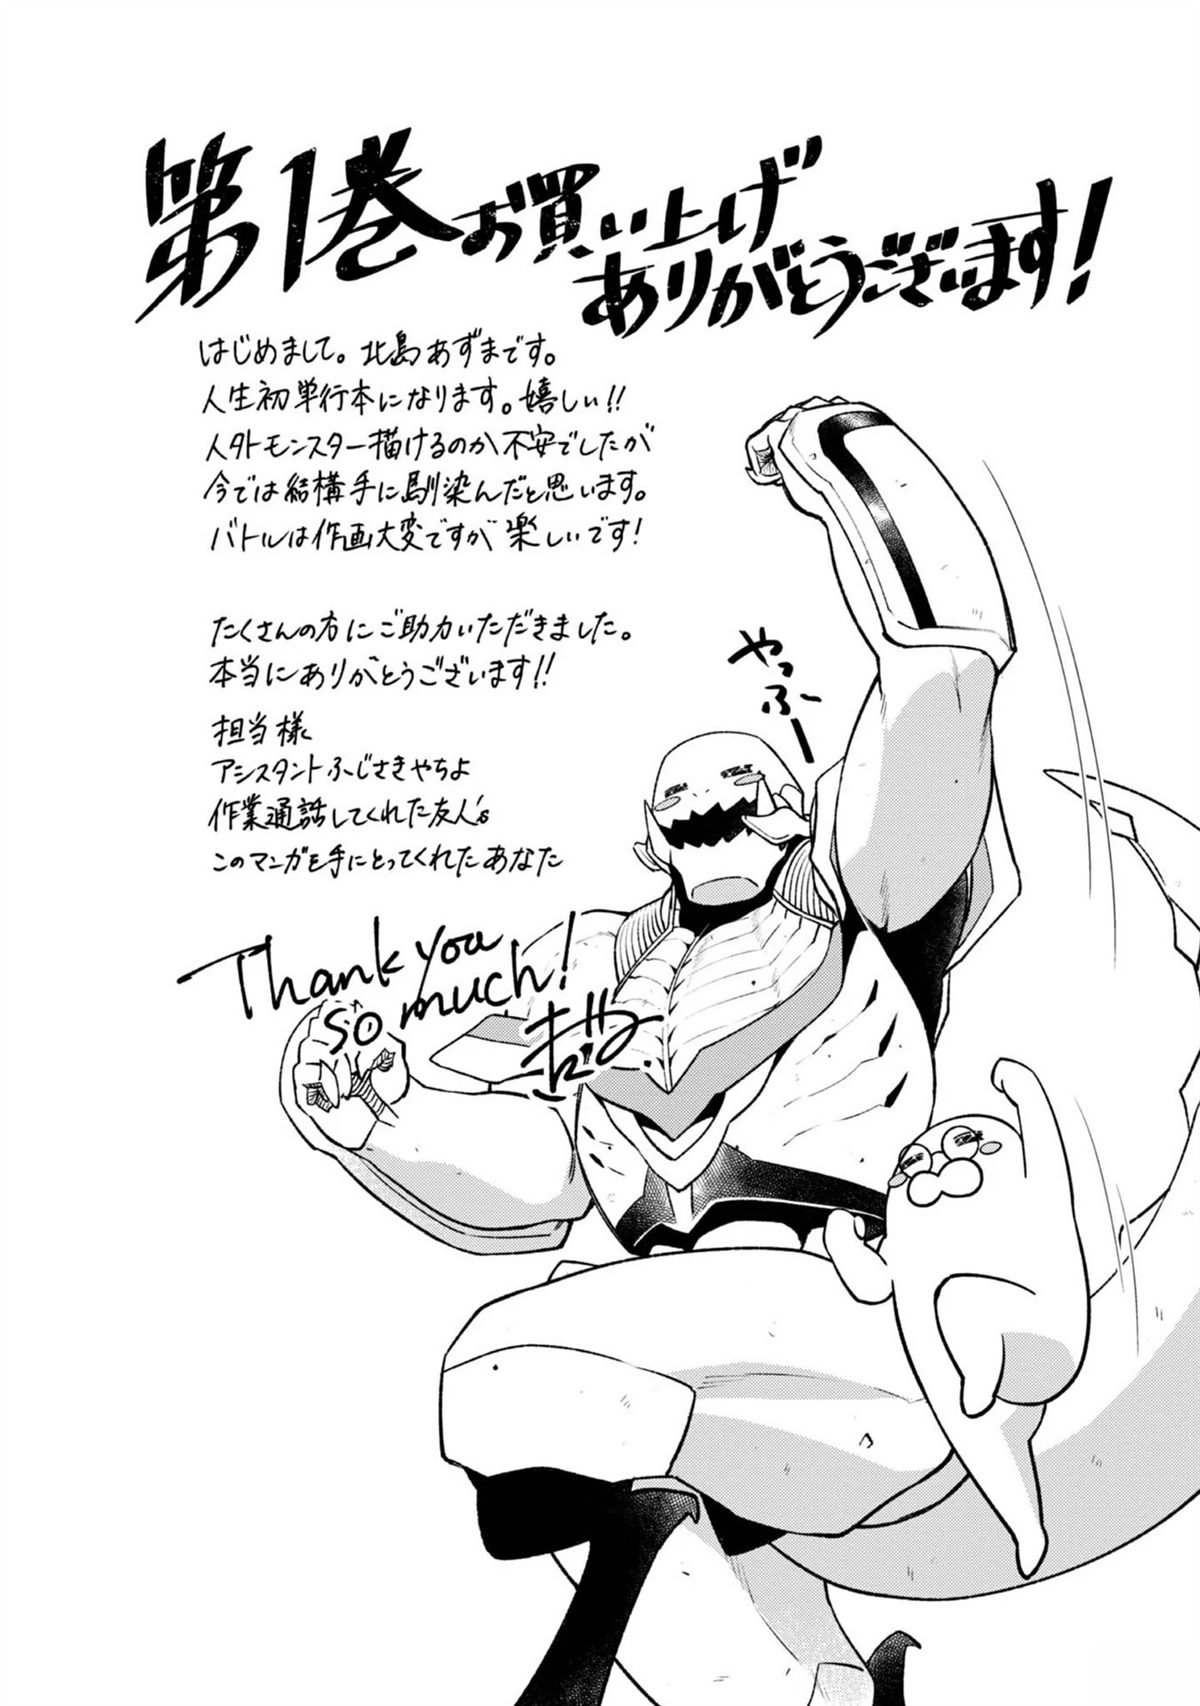 第1巻お買い上げ
ありがとうございます!
はじめまして。北島あずまです。
人生初単行本になります。嬉しい!!
人外モンスター描けるのか不安でしたが
今では結構手に馴染んだと思います。
バトルは作画大変ですが楽しいです!
たくさんの方にご助力いただきました。
本当にありがとうございます!!
担当様
アシスタントふじさきやちよ
作業通話してくれた友人's
このマンガを手にとってくれたあなた
やっふー
Thank you
so much!